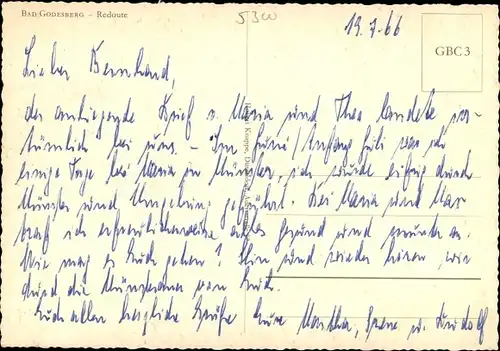 BAD GODESBERG – Redoute
5300
19.7.66
GBC 3
Lieber Bernhard,
der anliegende Brief v. Maria und Theo landete irr-
tümlich bei uns. – Im Juni/Anfang Juli war ich
einige Tage bei Maria in Münster, ich wurde eifrig durch
Münster und Umgebung geführt! Bei Maria und Mar
traf ich erfreulicherweise alles gesund und munter an.
Wie mag es Euch gehen? Hin und wieder hören wir
durch die Münsteraner von Euch.
Euch allen herzliche Grüße Eure Martha, u. Rudolf